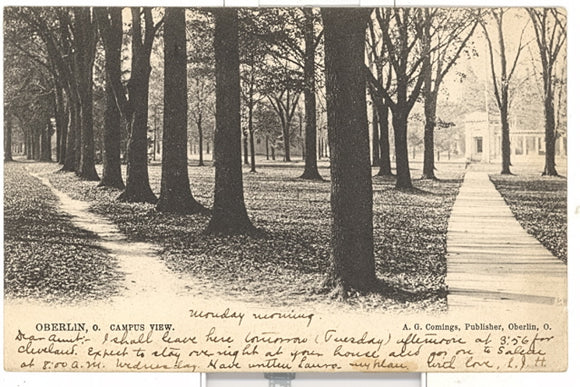 Monday morning
OBERLIN, O. CAMPUS VIEW.
A. G. Comings, Publisher, Oberlin, O.
Dear Aunt:- I shall leave here tomorrow (Tuesday) afternoon at 3:56 for
Cleveland. Expect to stay over night at your house and go on to Salem
at 8:00 A.M. Wednesday. Have written Laura my plan. With love, L. H.